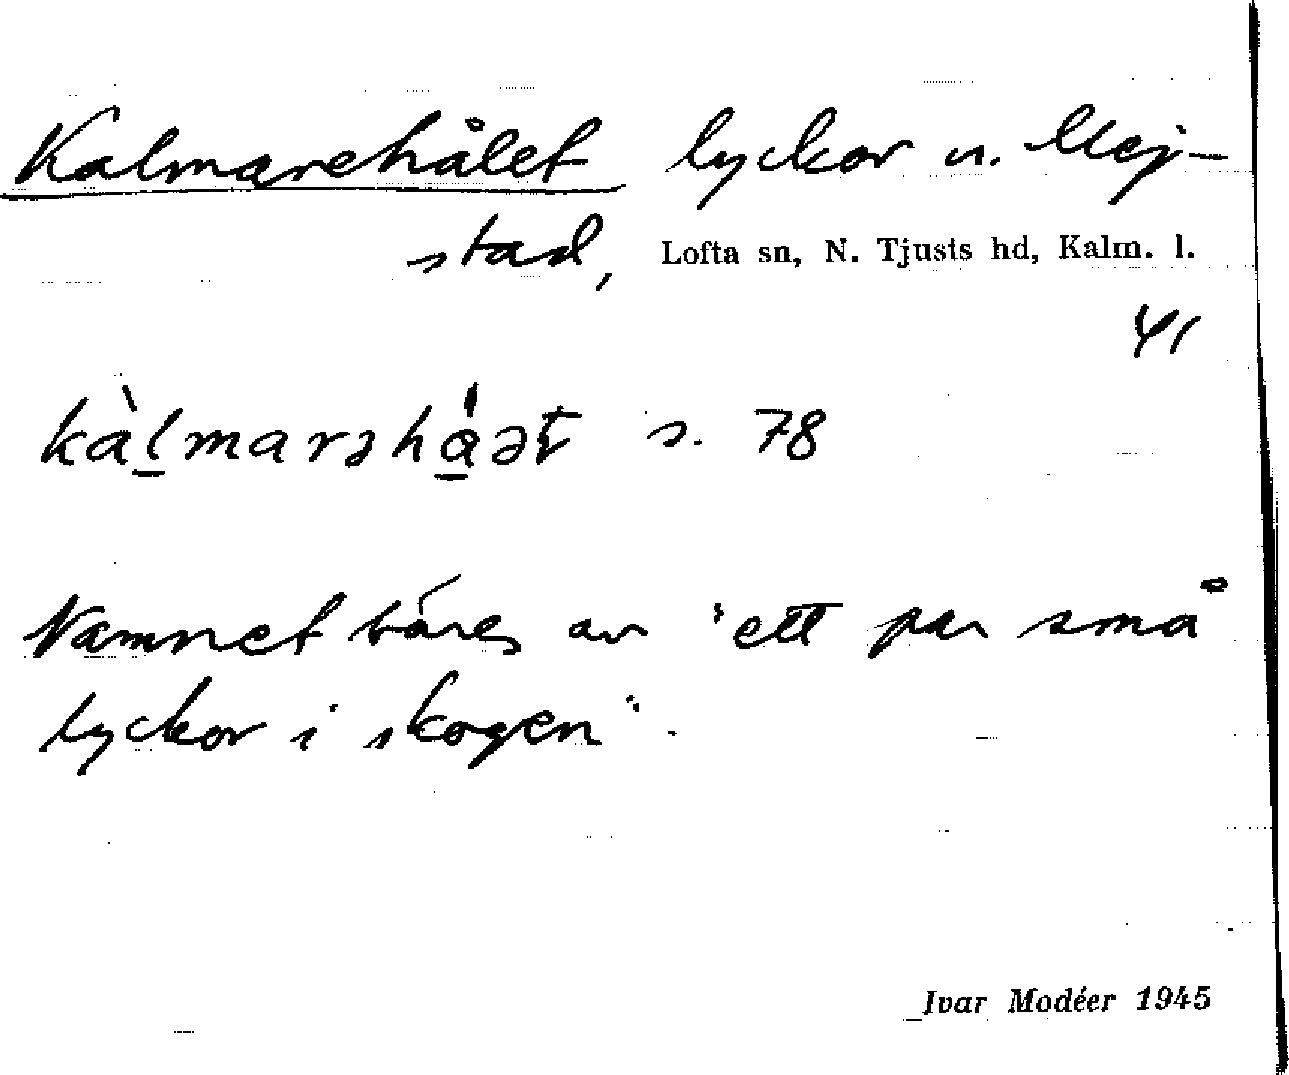 Kalmarehålet lyckor u. Mej-
stad, Lofta sn, N. Tjusts hd, Kalm. l.
41
kàlmarəhå̀ət s. 78
Namnet bäres av "ett par små
lyckor i skogen".
Ivar Modéer 1945